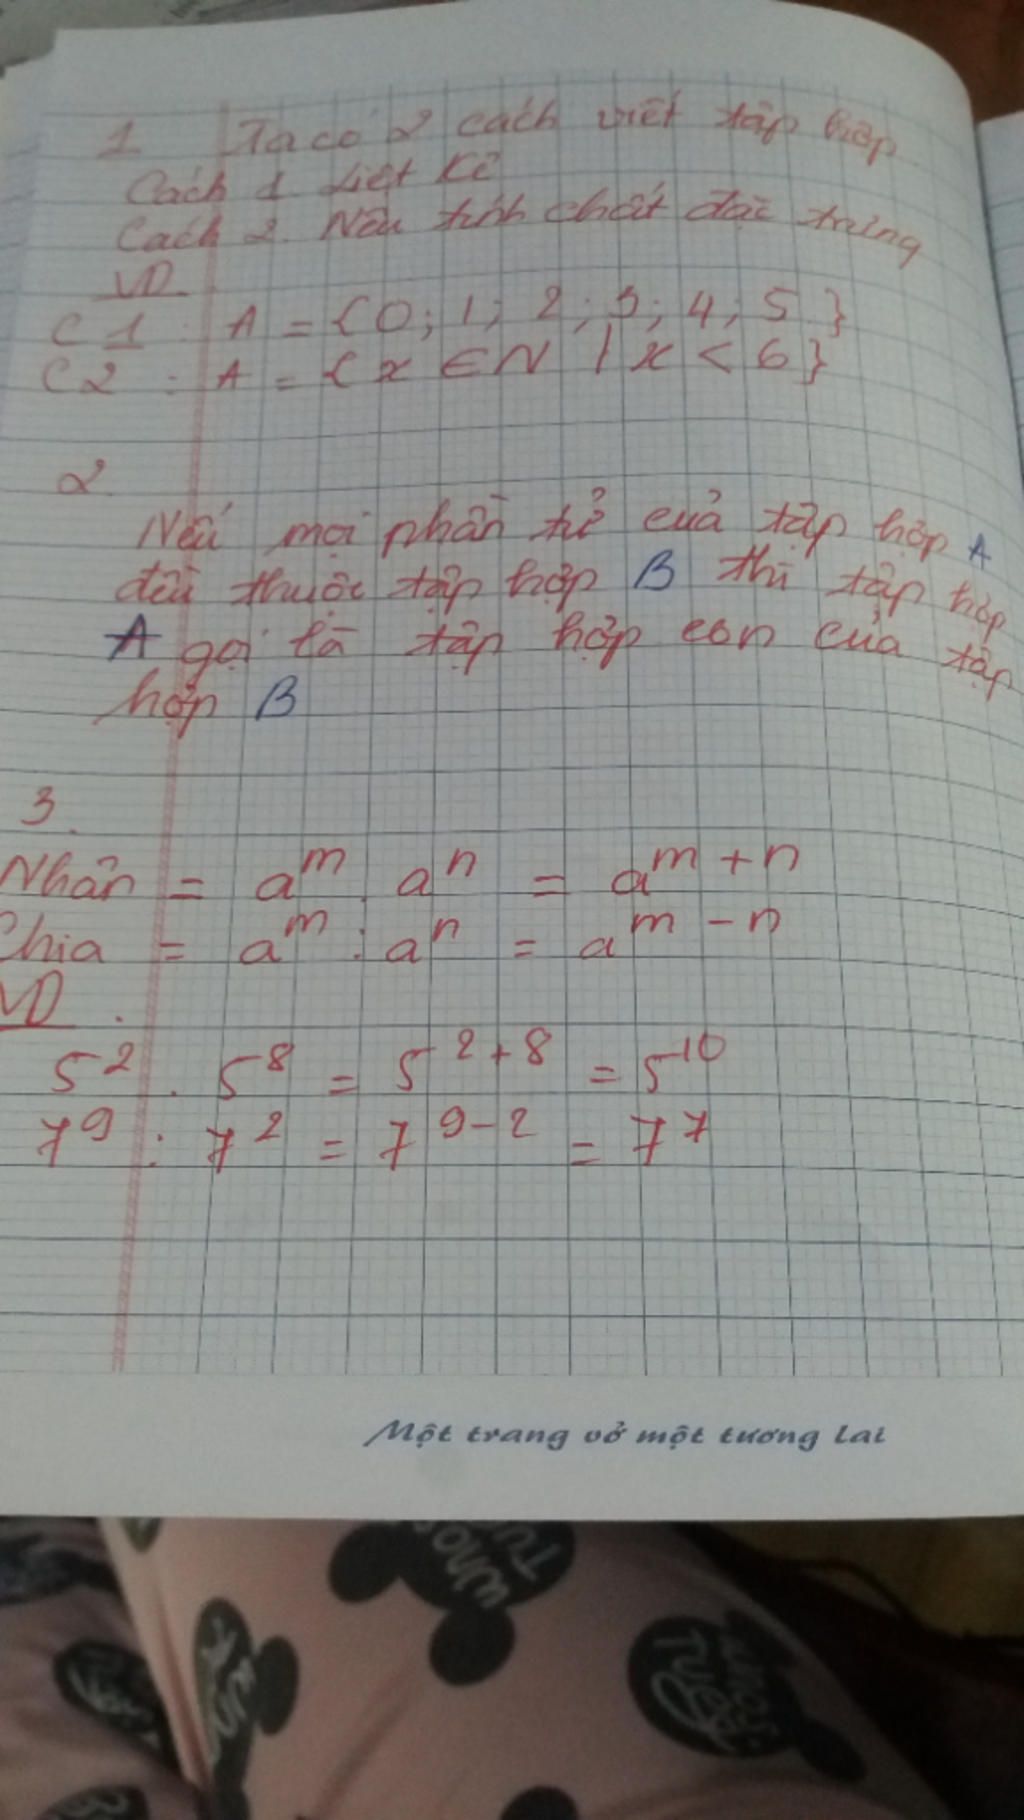 1 Ta có 2 cách viết tập hợp
Cách 1 Liệt kê
Cách 2. Nêu tính chất đặc trưng
VD
C1 : A = {0; 1; 2; 3; 4; 5}
C2 : A = {x ∈ N | x < 6}
2
Nếu mọi phần tử của tập hợp A
đều thuộc tập hợp B thì tập hợp
A gọi là tập hợp con của tập
hợp B
3.
Nhân = a^m . a^n = a^{m+n}
Chia = a^m : a^n = a^{m-n}
VD.
5^2 . 5^8 = 5^{2+8} = 5^{10}
7^9 : 7^2 = 7^{9-2} = 7^7
Một trang vở một tương lai